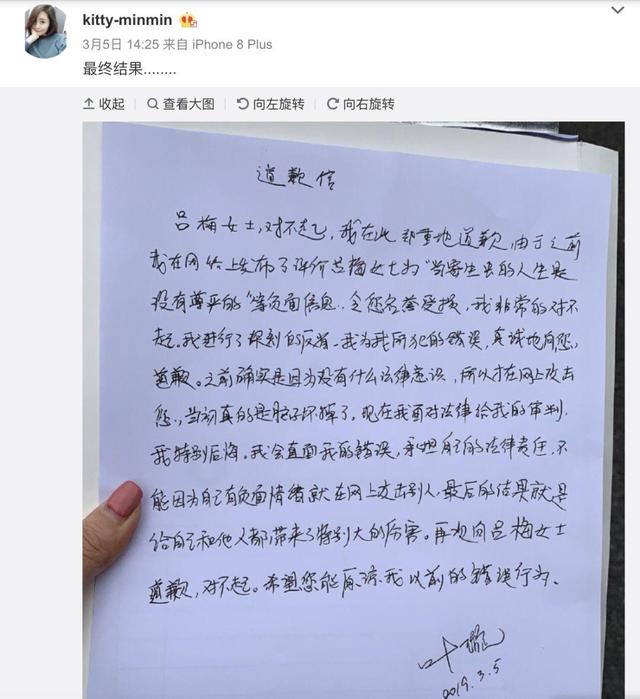 kitty-minmin
3月5日 14:25 来自 iPhone 8 Plus
最终结果........
收起 查看大图 向左旋转 向右旋转
道歉信
吕梅女士,对不起,我在此郑重地道歉,由于之前
我在网络上发布了评价吕梅女士为"当寄生虫的人生是
没有尊严的"等负面信息,令您名誉受损,我非常的对不
起。我进行了深刻的反省,我为我所犯的错误,真诚地向您
道歉。之前确实是因为没有什么法律意识,所以才在网上攻击
您,当初真的是脑子坏掉了,现在我面对法律给我的审判,
我特别后悔。我会直面我的错误,承担自己的法律责任,不
能因为自己有负面情绪就在网上攻击别人,最后的结果就是
给自己和他人都带来了特别大的伤害。再次向吕梅女士
道歉,对不起。希望您能原谅我以前的错误行为。
2019.3.5